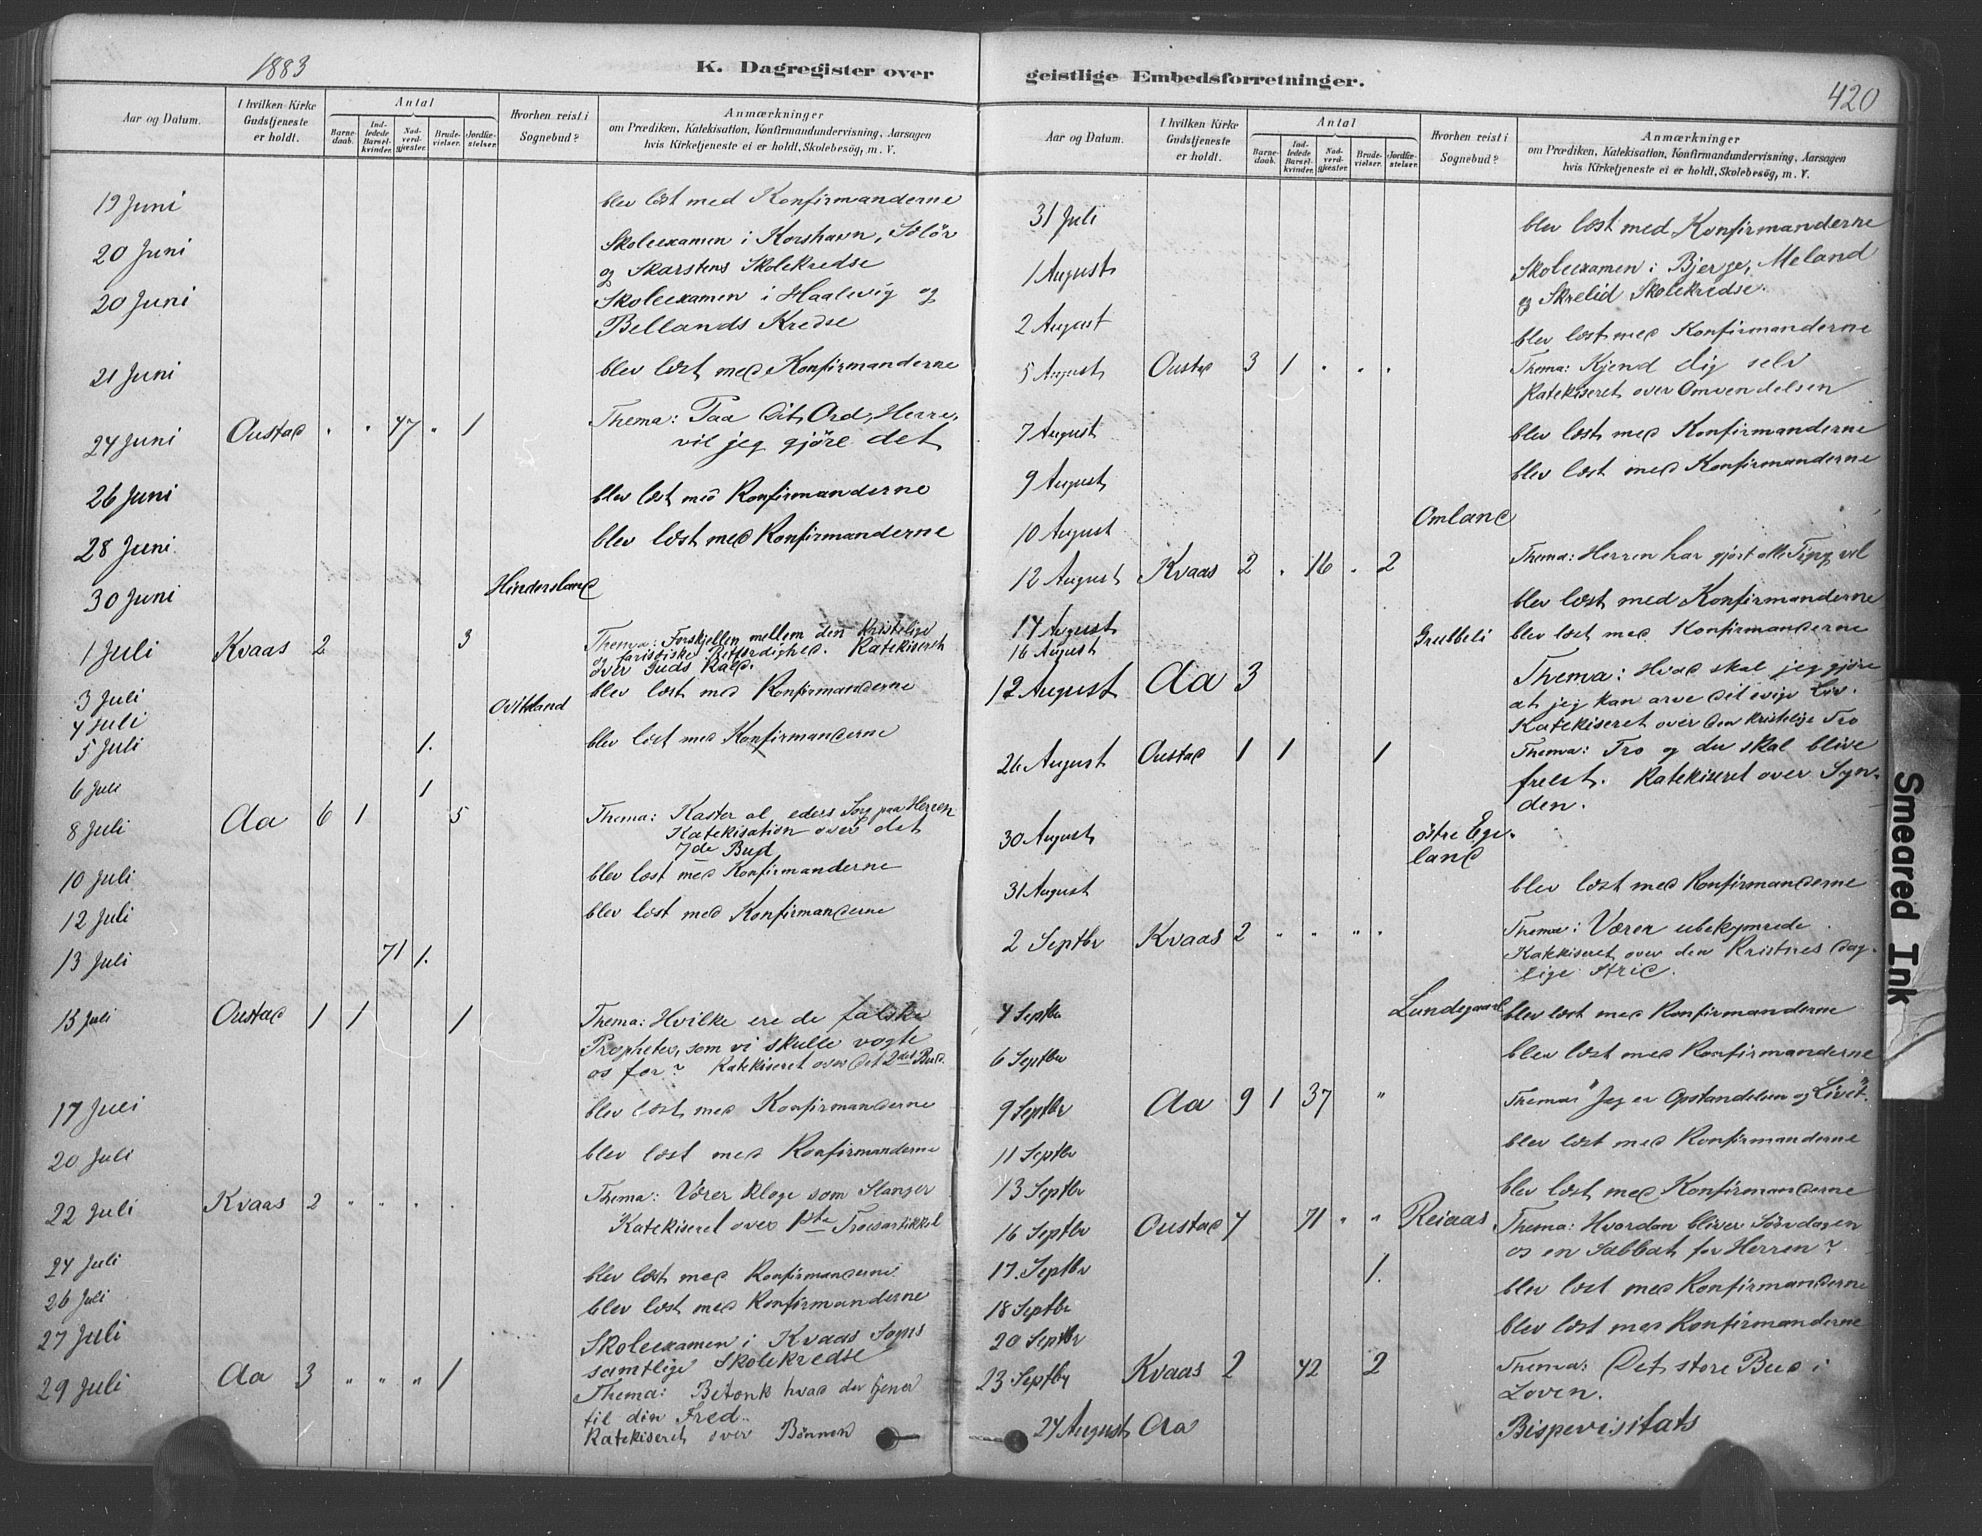 1883
K. Dagregister over
Aar og Datum.
I hvilken Kirke Gudstjeneste er holdt.
Antal
Barne-daab.
Ind-ledede Barsel-kvinder.
Nad-verd-gjæster.
Brude-vielser.
Jordfæ-stelser.
Hvorhen reist i Sognebud?
Anmærkninger
om Prædiken, Katekisation, Konfirmandundervisning, Aarsagen
hvis Kirketjeneste ei er holdt, Skolebesøg, m. V.
19 Juni blev læst med Konfirmanderne
20 Juni Skoleexamen i Korshavn, Sölör
og Skarstens Skolekredse
20 Juni Skoleexamen i Haalevig og
Bellands Kredse
21 Juni blev læst med Konfirmanderne
24 Juni Oustad " " 47 " 1 Thema: Paa dit Ord, Herre,
vil jeg gjöre det
26 Juni blev læst med Konfirmanderne
28 Juni blev læst med Konfirmanderne
30 Juni Hindersland
1 Juli Kvaas 2 3 Thema: Forskjellen mellem den kristelige
og farisæiske Retfærdighed. Katekiseret
over Guds
3 Juli blev læst med Konfirmanderne
4 Juli Ovitland
5 Juli 1. blev læst med Konfirmanderne
6 Juli 1
8 Juli Aa 6 1 5 Thema: Kaster al eders Sorg paa Herren
Katekisation over det
7de Bud
10 Juli blev læst med Konfirmanderne
12 Juli blev læst med Konfirmanderne
13 Juli 71 1.
15 Juli Oustad 1 1 1 Thema: Hvilke ere de falske
Propheter, som vi skulle vogte
os for? Katekiseret over det 2det Bud.
17 Juli blev læst med Konfirmanderne
20 Juli blev læst med Konfirmanderne
22 Juli Kvaas 2 " " . . Thema: Værer kloge som Slanger
Katekiseret over 1ste Troesartikkel
24 Juli blev læst med Konfirmanderne
26 Juli blev læst med Konfirmanderne
27 Juli Skoleexamen i Kvaas Sogns
samtlige Skolekredse
29 Juli Aa 3 " " " 1 Thema: Betænk hvad der tjener
til din Fred.
Katekiseret over Bönnen
geistlige Embedsforretninger.
420
Aar og Datum.
I hvilken Kirke Gudstjeneste er holdt.
Antal
Barne-daab.
Ind-ledede Barsel-kvinder.
Nad-verd-gjæster.
Brude-vielser.
Jordfæ-stelser.
Hvorhen reist i Sognebud?
Anmærkninger
om Prædiken, Katekisation, Konfirmandundervisning, Aarsagen
hvis Kirketjeneste ei er holdt, Skolebesøg, m. V.
31 Juli blev læst med Konfirmanderne
1 August Skoleexamen i Bjerge, Meland
og Skrelid Skolekredse.
2 August blev læst med Konfirmanderne
5 August Oustad 3 1 . . . Thema: Kjend dig selv
Katekiseret over Omvendelsen
7 August blev læst med Konfirmanderne
9 August blev læst med Konfirmanderne
10 August Omland
12 August Kvaas 2 . 16 . 2 Thema: Herren har gjört alle Ting vel
14 August blev læst med Konfirmanderne
16 August Grubbeli blev læst med Konfirmanderne
12 August Aa 3 Thema: Hvad skal jeg gjöre
at jeg kan arve det evige Liv.
Katekiseret over den kristelige Tro
26 August Oustad 1 1 1 Thema: Tro og du skal blive
frelst. Katekiseret over Syn-
den.
30 August östre Ege-
land
31 August blev læst med Konfirmanderne
2 Septbr Kvaas 2 " " " . Thema: Værer ubekymrede
Katekiseret over den Kristnes dag-
lige Strid.
4 Septbr Lundegaard blev læst med Konfirmanderne
6 Septbr blev læst med Konfirmanderne
9 Septbr Aa 9 1 37 " Thema: "Jeg er Opstandelsen og Livet."
11 Septbr blev læst med Konfirmanderne
13 Septbr blev læst med Konfirmanderne
16 Septbr Oustad 4 71 " " Reiaas Thema: Hvordan bliver Söndagen
os en Sabbat for Herren?
17. Septbr 1.
18 Septbr blev læst med Konfirmanderne
20 Septbr blev læst med Konfirmanderne
23 Septbr Kvaas 2 42 2 Thema: Det store Bud i
Loven.
24 August Aa Bispevisitats
Smeared Ink